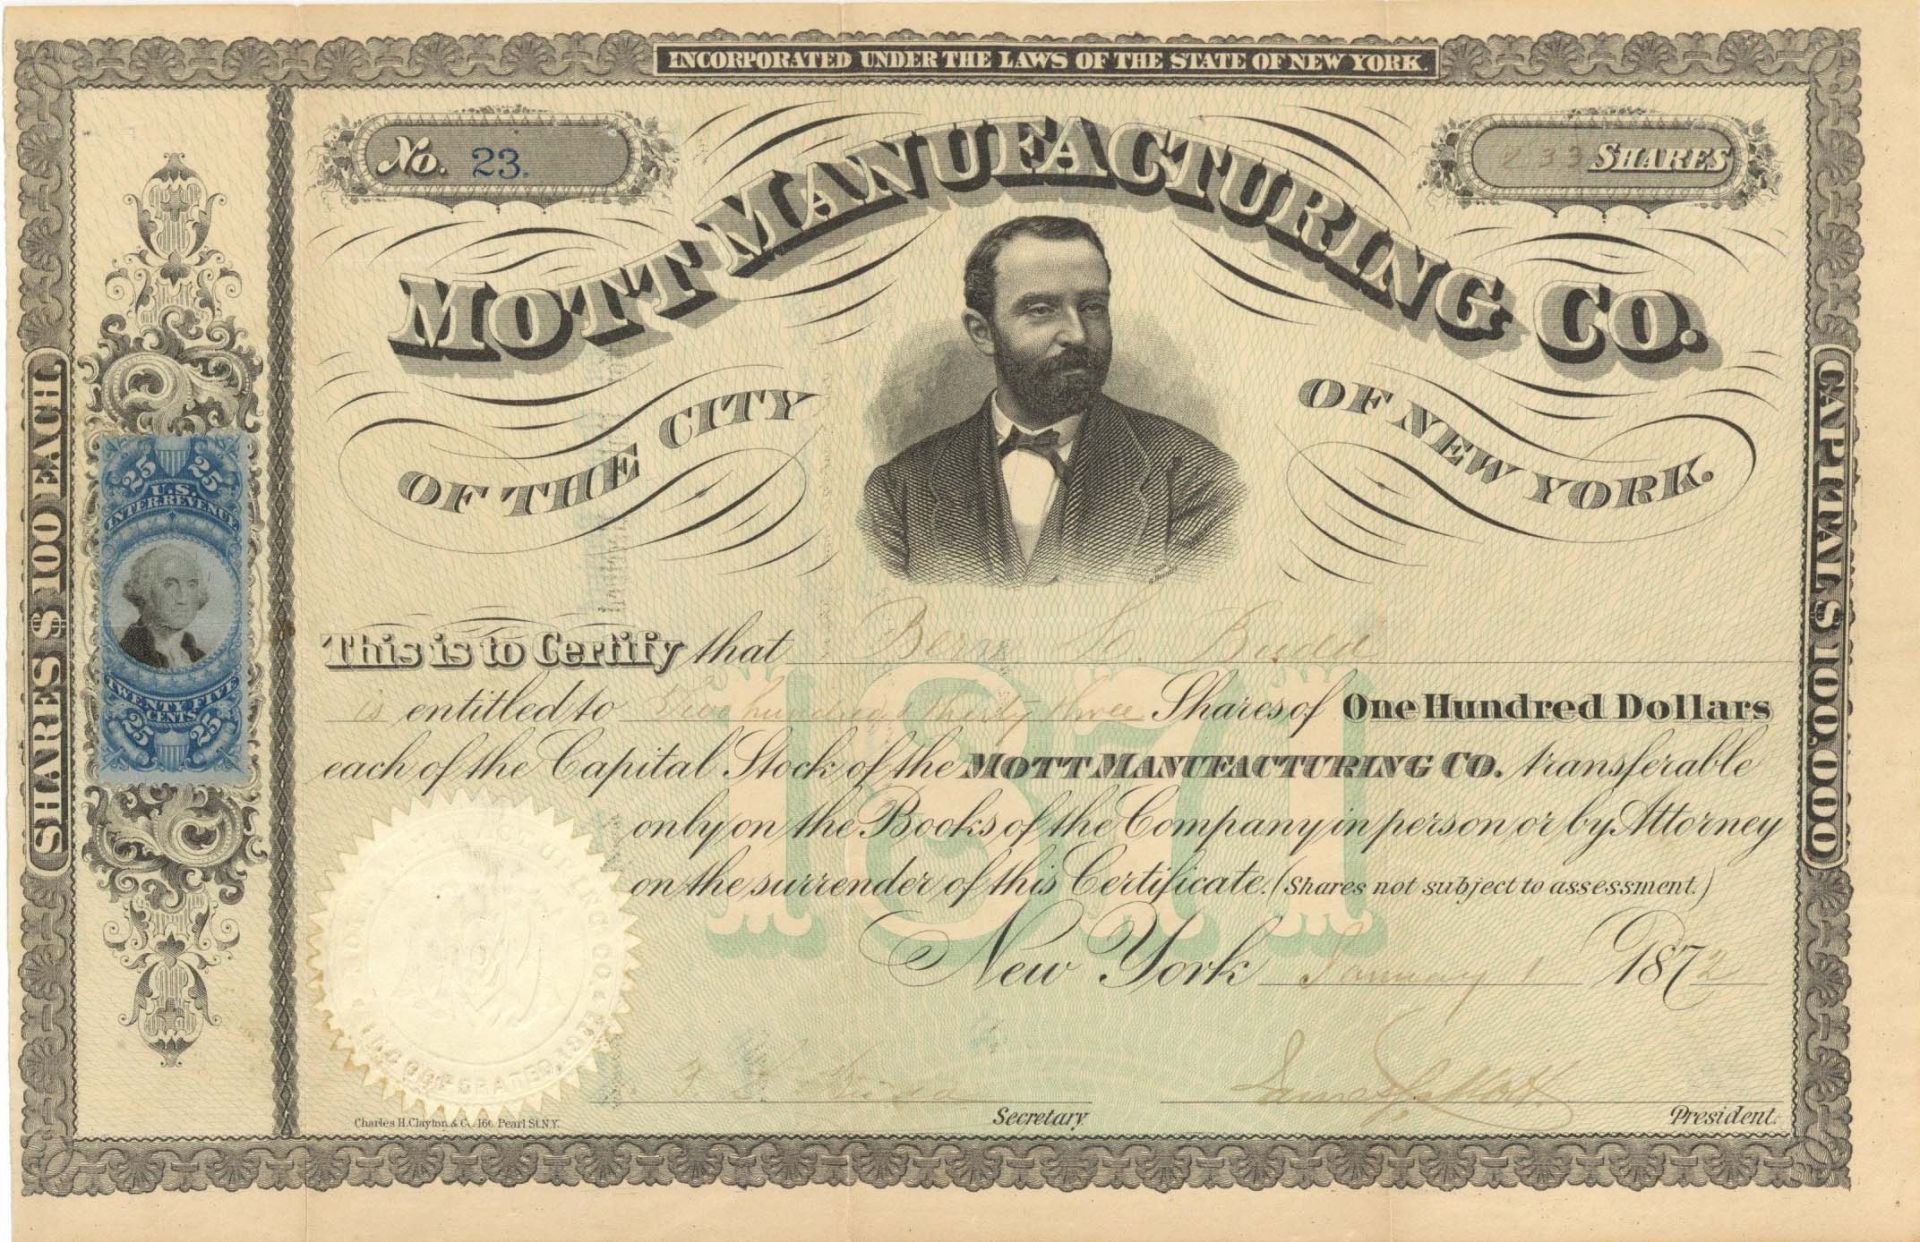 INCORPORATED UNDER THE LAWS OF THE STATE OF NEW YORK.
No. 23.
233 SHARES
MOTT MANUFACTURING CO.
OF THE CITY OF NEW YORK.
SHARES $100 EACH.
CAPITAL $100,000
25 25
U.S.
INTER. REVENUE.
TWENTY FIVE
CENTS
25 25
This is to Certify that Budd
is entitled to Two hundred & thirty three Shares of One Hundred Dollars
each of the Capital Stock of the MOTT MANUFACTURING CO. transferable
only on the Books of the Company in person or by Attorney
on the surrender of this Certificate. (Shares not subject to assessment.)
1871
New York January 1 1872
INCORPORATED
Secretary
President.
Charles H. Clayton & Co. 166 Pearl St. N.Y.